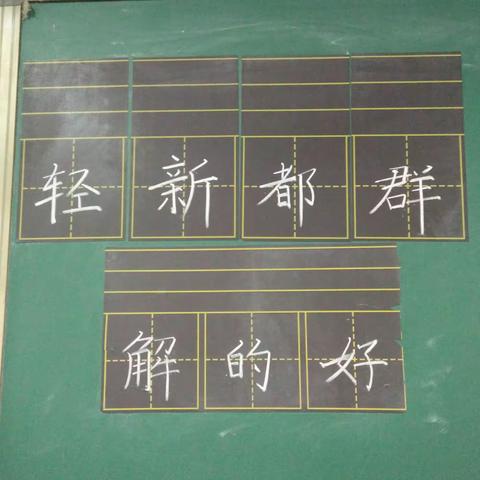 轻新都群
解的好